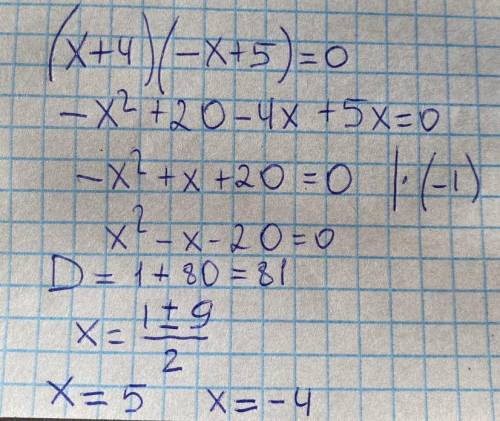 (x+4)(-x+5)=0
-x²+20-4x+5x=0
-x²+x+20=0 |·(-1)
x²-x-20=0
D=1+80=81
x=(1±9)/2
x=5 x=-4